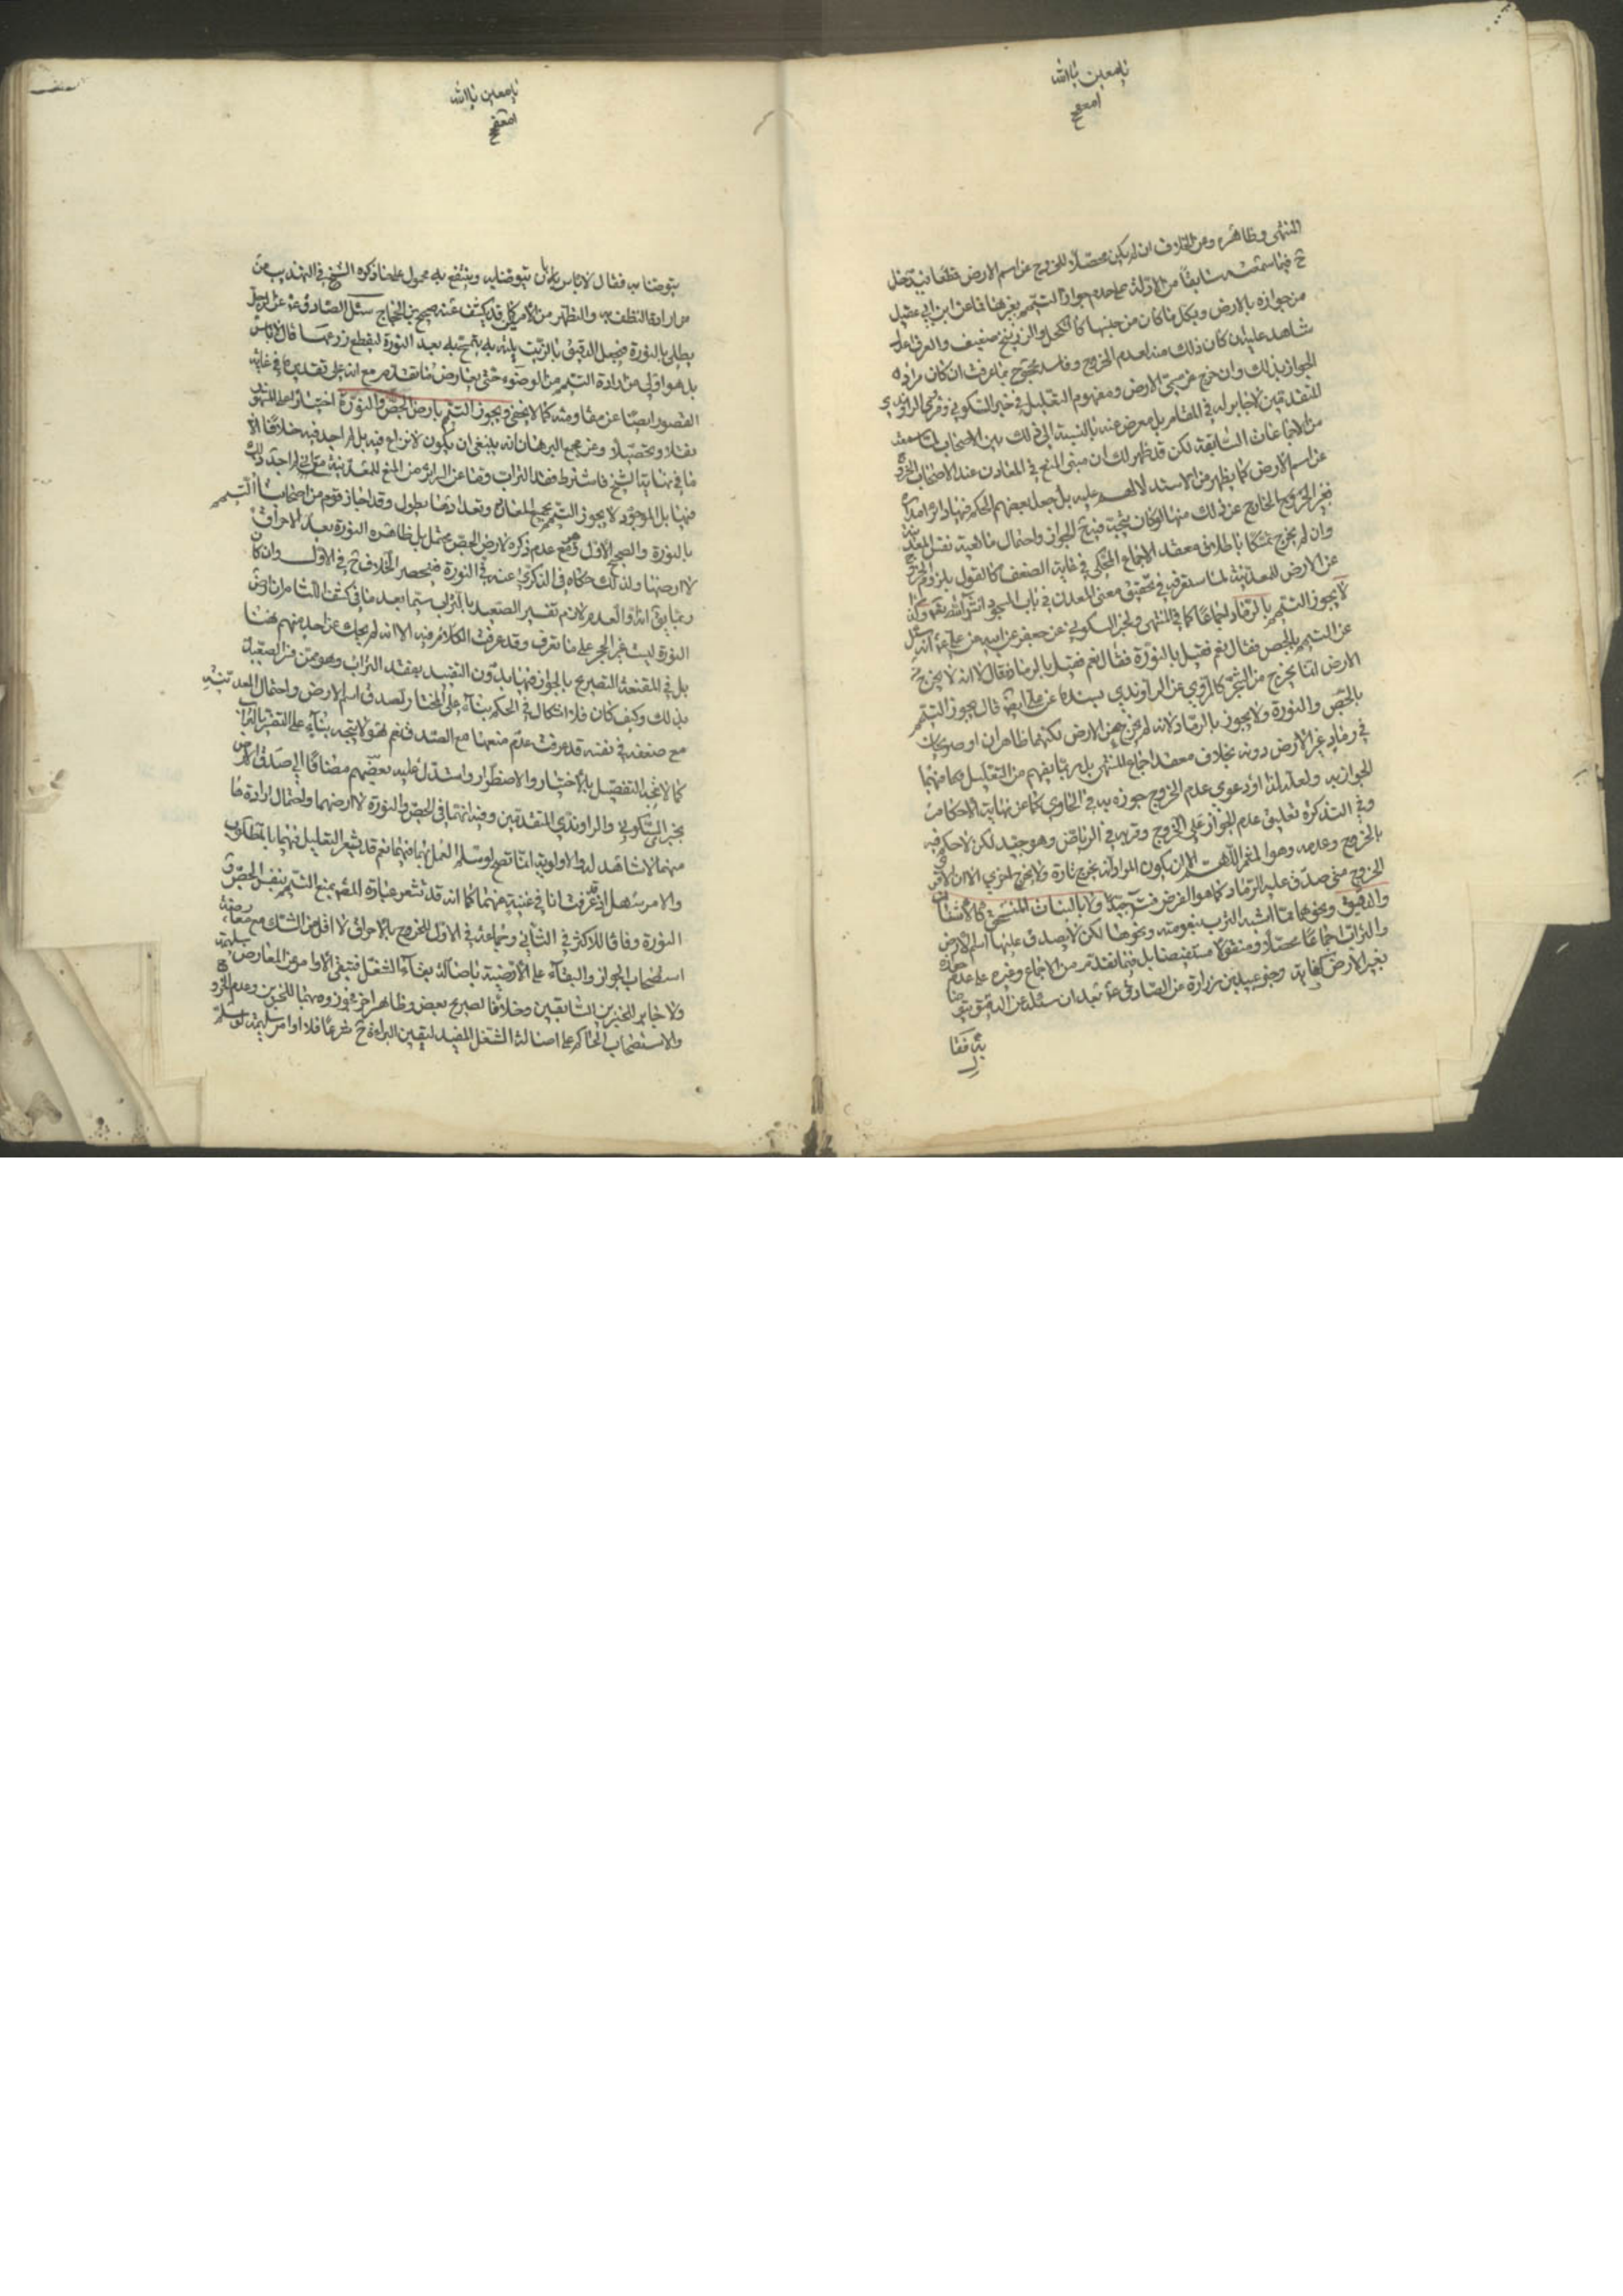 يا معين يا الله
المنتهى وظاهره ومن الخلاف ان لم يكن محصلا للخروج عن اسم الارض قطعا فيدخل
ح فيما سمعته سابقا من الادلة على عدم جواز التيمم بغيرها فما عن ابن ابي عقيل
من جوازه بالارض وبكل ما كان من جنسها كالكحل والزرنيخ ضعيف والعرف اعدل
شاهد عليه ان كان ذلك منه لعدم الخروج وفاسد محجوج بما عرفت ان كان مراده
الجواز بذلك وان خرج عن مسمى الارض ومفهوم التعليل في خبر السكوني والراوندي
المتقدمين لا جابر له في المقام بل معرض عنه بالنسبة الى ذلك بين الاصحاب لما سمعت
من الاجماعات السابقة لكن قد ظهر لك ان مبنى المنع في المعادن عند الاصحاب الخروج
عن اسم الارض كما يظهر من الاستدلال عليه بل جعل بعضهم الحكم فيها دائرا مداره
فغير الخروج الخارج عن ذلك منها لو كان يتجه فيه ح الجواز واحتمال مانعية نفس المعدنية
وان لم يخرج تمسكا باطلاق معقد الاجماع المحكي في غاية الضعف كالقول بلزوم الخروج
عن الارض للمعدنية لما ستعرفه في تحقيق معنى المعدن في باب السجود انشاء الله تعالى وكذا
لا يجوز التيمم بالرماد اجماعا كما في المنتهى ولخبر السكوني عن جعفر عن ابيه عن علي ع انه سئل
عن التيمم بالجص فقال نعم فقيل بالنورة فقال نعم فقيل بالرماد فقال لا انه لا يخرج من
الارض انما يخرج من الشجر كالمروي عن الراوندي بسنده عن علي ايضا قال يجوز التيمم
بالجص والنورة ولا يجوز بالرماد لانه لم يخرج من الارض لكنهما ظاهران او صريحان
في رماد غير الارض دونه بخلاف معقد اجماع المنتهى بل ربما يفهم من التعليل كما منهما
الجواز به ولعله لذا او دعوى عدم الخروج جوزه به في الحاوي كما عن نهاية الاحكام
وفي التذكرة تعليق عدم الجواز على الخروج وقربه في الرياض وهو جيد لكن لا حكم فيه
بالخروج وعدمه وهو المهم اللهم الا ان يكون المراد انه يخرج تارة ولا يخرج اخرى الا ان الاقوى
الخروج متى صدق عليه الرماد كما هو الفرض جيدا ولا بالنبات المنسحق كالاشنان
والدقيق ونحوهما مما اشبه التراب بنعومته ونحوها لكن لا يصدق عليها اسم الارض
والتراب اجماعا محصلا ومنقولا مستفيضا بل فيما تقدم من الاجماع وغيره على عدم جوازه
بغير الارض كفاية وخبر عبيد بن زرارة عن الصادق ع بعد ان سئله عن الدقيق يتوضا
به فقال
يا معين يا الله
يتوضا به فقال لا باس بان يتوضا به وينتفع به محمول على ما ذكره الشيخ في التهذيب من
من ارادة التنظف به والتطهر من الدرن كما قد يكشف عنه صحيح بن الحجاج سئل الصادق ع عن الرجل
يطلي بالنورة فيجعل الدقيق بالزيت يلته به يتمسح به بعد النورة ليقطع ريحها قال لا باس
بل هو اولى من ارادة التيمم من الوضوء حتى يعارض ما تقدم مع انه على تقديره في غاية
القصور ايضا عن مقاومته كما لا يخفى ويجوز التيمم بارض الجص والنورة اختيارا على المشهور
نقلا وتحصيلا وعن مجمع البرهان انه ينبغي ان يكون لا نزاع فيه بل لم اجد فيه خلافا الا
ما في نهاية الشيخ فاشترط فقد التراب وما عن السرائر من المنع للمعدنية مع اني لم اجد ذلك
فيها بل الموجود لا يجوز التيمم بجميع المعادن وتعدادها يطول وقد اجاز قوم من اصحابنا التيمم
بالنورة والصحيح الاول وهو مع عدم ذكره لارض الجص محتمل بل ظاهره النورة بعد الاحراق
لا ارضها ولذلك حكاه في الذكرى عنه في النورة فينحصر الخلاف ح في الاول وان كان
وعبارته ان العدم لازم تفسير الصعيد بالتراب سيما بعد ما في كشف اللثام ان ارض
النورة ليست غير الحجر على ما نعرف وقد عرفت الكلام فيه الا انه لم يحك عن احد منهم هنا
بل في المقنعة التصريح بالجواز فيها بدون التقييد بفقد التراب وهو ممن فسر الصعيد
بذلك وكيف كان فلا اشكال في الحكم بناء على المختار لصدق اسم الارض واحتمال المعدنية
مع ضعفه في نفسه قد عرفت عدم منعها مع الصدق نعم هو لا يتجه بناء على التفسير بالتراب
كما لا يتجه التفصيل بالاختيار والاضطرار واستدل عليه بعضهم مضافا الى صدق الارض
بخبر السكوني والراوندي المتقدمين وفيه انهما في الجص والنورة لا ارضهما واحتمال ارادة ما
منهما لا شاهد له والاولوية انما تصح لو سلم العمل بهما فيهما نعم قد يشعر التعليل فيهما بالمطلوب
والامر سهل اذ قد عرفت انا في غنية عنهما كما انه قد تشعر عبارة المصنف بمنع التيمم بنفس الجص و
النورة وفاقا للاكثر في الثاني وجماعة في الاول للخروج بالاحراق لا اقل من الشك مع معارضة
استصحاب الجواز والبقاء على الارضية باصالة بقاء الشغل فتبقى الاوامر عن المعارض سليمة
ولا جابر للخبرين السابقين وخلافا لصريح بعض وظاهر اخر فجوزوه بهما للخبرين وعدم الخروج
والاستصحاب الحاكم على اصالة الشغل المفيد ليقين البراءة ح شرعا فلا اوامر سليمة لو سلم